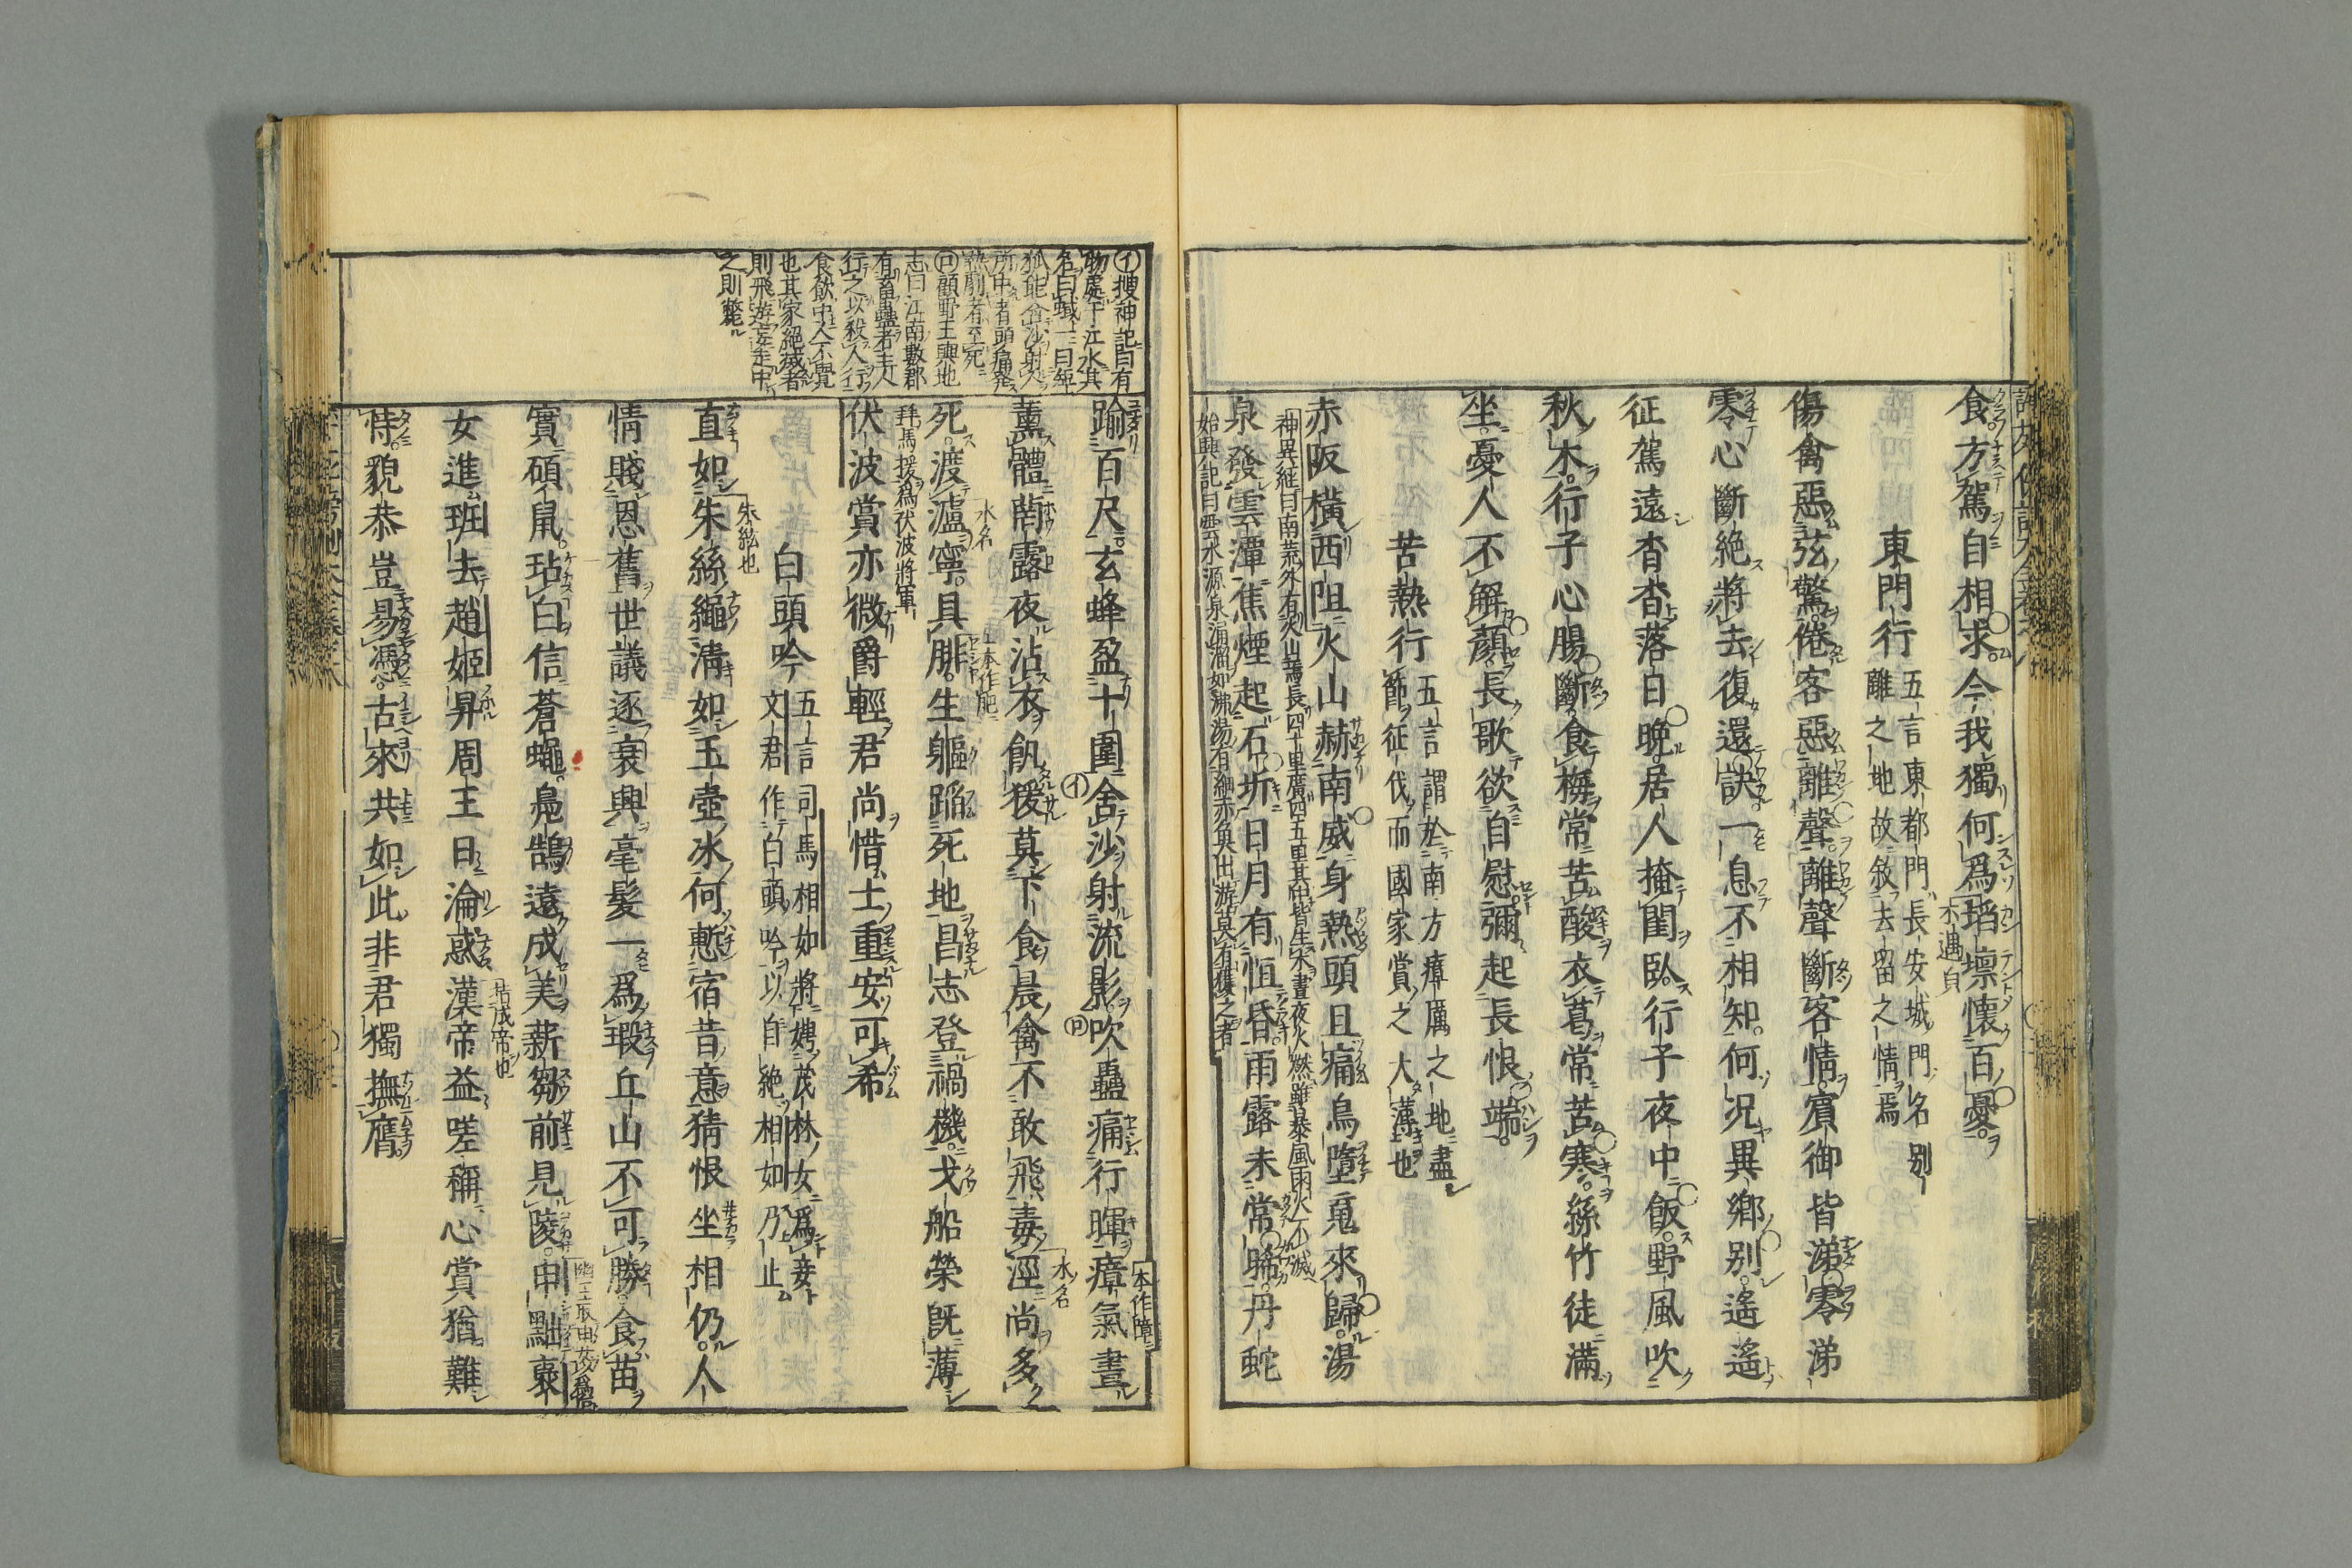 食方駕自相求今我獨何爲塪壈懷百憂
不遇皃
東門行
五言東都門長安城門名別
離之地故敘去留之情焉
傷禽惡弦驚倦客惡離聲離聲斷客情賓御皆涕零涕
零心斷絶將去復還訣一息不相知何況異鄉別遙遙
征駕遠杳杳落日晚居人掩閨臥行子夜中飯野風吹
秋木行子心腸斷食梅常苦酸衣葛常苦寒絲竹徒滿
坐憂人不解顏長歌欲自慰彌起長恨端
苦熱行
五言謂於南方瘴厲之地盡
節征伐而國家賞之大薄也
赤阪橫西阻火山赫南威身熱頭且痛鳥墮䰟來歸湯
神異經曰南荒外有火山焉長四十里廣四五里其中皆生木晝夜火燃雖暴風雨火不滅
泉發雲潭焦煙起石圻日月有恒昏雨露未常晞丹蛇
始興記曰雲水源泉涌溜如沸湯有細赤魚出游莫有獲之者
㋑搜神記曰有
物處于江水其
名曰蜮一曰短
狐能含沙射人
所中者頭痛發
熱劇者至死
㋺顧野王輿地
志曰江南數郡
有畜蠱者主人
行之以殺人行
食飲中人不覺
也其家絕滅者
則飛遊妄走中
之則斃
踰百尺玄蜂盈十圍含沙射流影吹蠱痛行暉瘴氣晝
本作障
薰體䓘露夜沾衣飢猨莫下食晨禽不敢飛毒涇尚多
水名
死渡瀘寧具腓生軀蹈死地昌志登禍機戈船榮旣薄
水名
本作肥
拜馬援爲伏波將軍
伏波賞亦微爵輕君尚惜士重安可希
白頭吟
五言司馬相如將娉茂林女爲妾
文君作白頭吟以自絶相如乃止
直如朱絲繩淸如玉壺冰何慙宿昔意猜恨坐相仍人
朱絃也
情賤恩舊世議逐衰興毫髮一爲瑕丘山不可勝食苗
實碩鼠玷白信蒼蠅鳧鵠遠成美薪芻前見陵申黜褒
女進班去趙姬昇周王日淪惑漢帝益嗟稱心賞猶難
恃貌恭豈易憑古來共如此非君獨撫膺